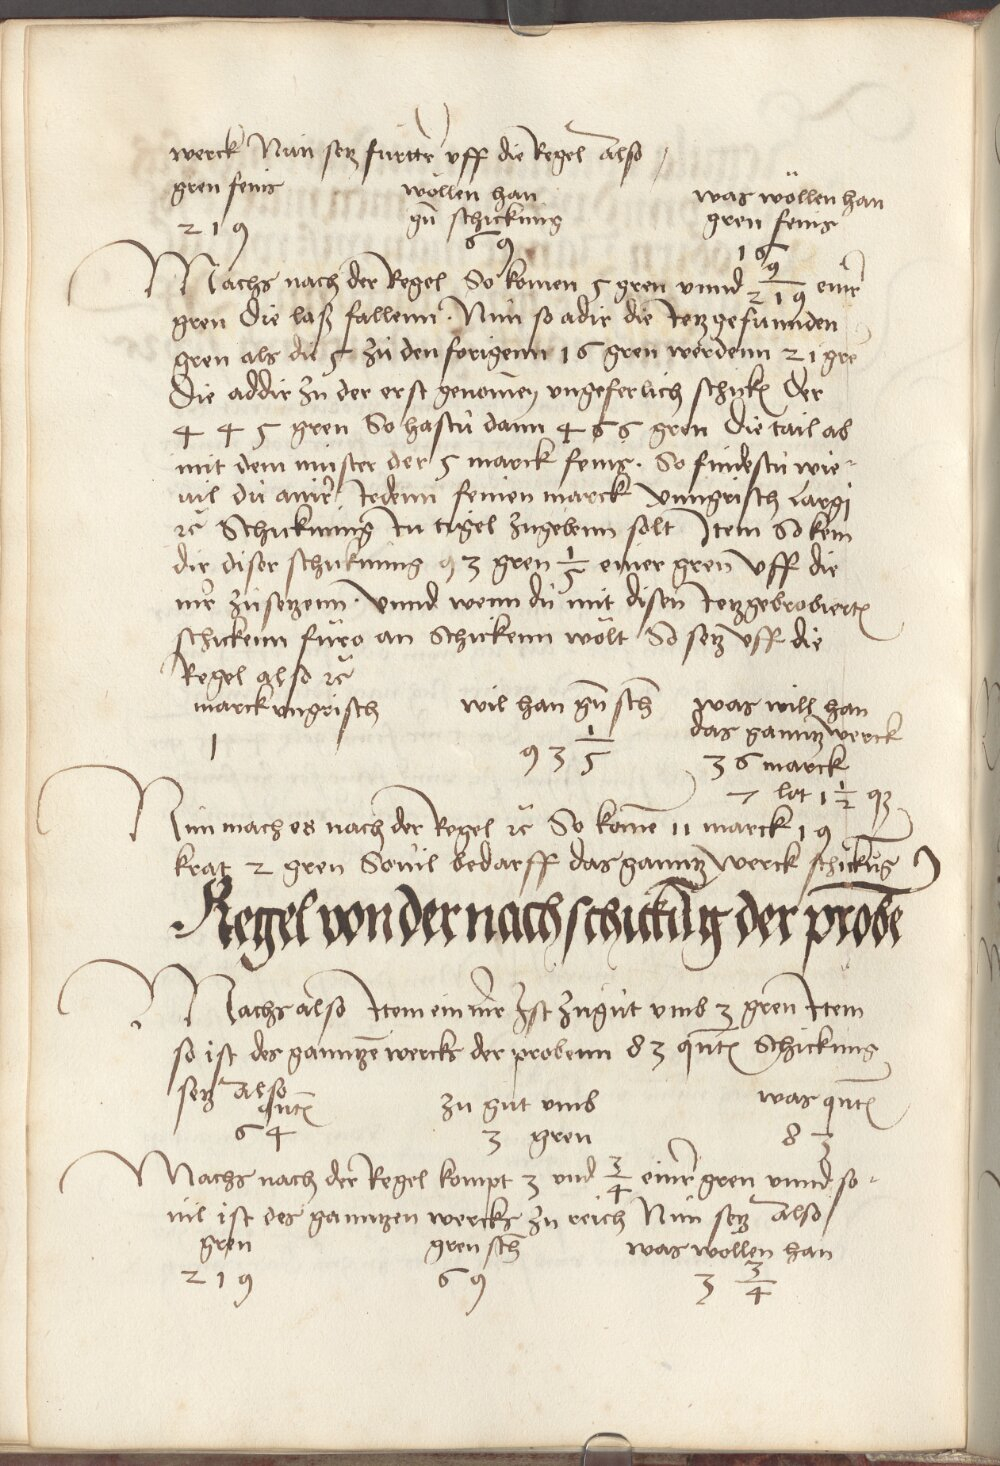 werck Nun setz furttr uff die Regel Also
gren fenis wöllen han was wöllen han
gū schickung gren fenis
219 69 16
Machs nach der Regel So komen 5 gren unnd 9/219 einr
gren Die lasz fallenn. Nun so adir die Jetzgefunnden
gren als die 5 zu den forigenn 16 gren werdenn 21 gre
Die addir zu der erst genomen ungeferlich schick der
445 gren So hastu dann 466 gren Die tail ab
mit dem munster der 5 marck fenis. So findestu wie-
vil du ainr Jedenn feinen marck Unngrisch largi
rc Schickung In tigel zugebenn solt Item So kem
dir diser schickung 93 gren 1/5 einer gren Uff die
mr zu setzenn. Unnd wenn du mit disen Jetzgebrobiertē
schickenn furo an Schickenn wölt So setz uff die
Regel also rc
marck ungrisch wil han gū sch was will han
das ganntz werck
1 93 1/5 36 marck
7 lot 1 1/2 q
Nun mach es nach der Regel rc So komē 11 marck 19
krat 2 gren Souil bedarff das ganntz werck schickūg
Regel von der nachschickūg der probe
Machs also Item ein mr Ist zu gut umb 3 gren Item
so ist des ganntzē wercks der probenn 83 qntē Schickung
setz Also
qntē zu gut umb was qntē
64 3 gren 83
Machs nach der Regel kompt 3 und 3/4 einr gren unnd so-
uil ist des ganntzen wercks zu reich Nun setz Also
gren gren sch was wollen han
219 69 3 3/4